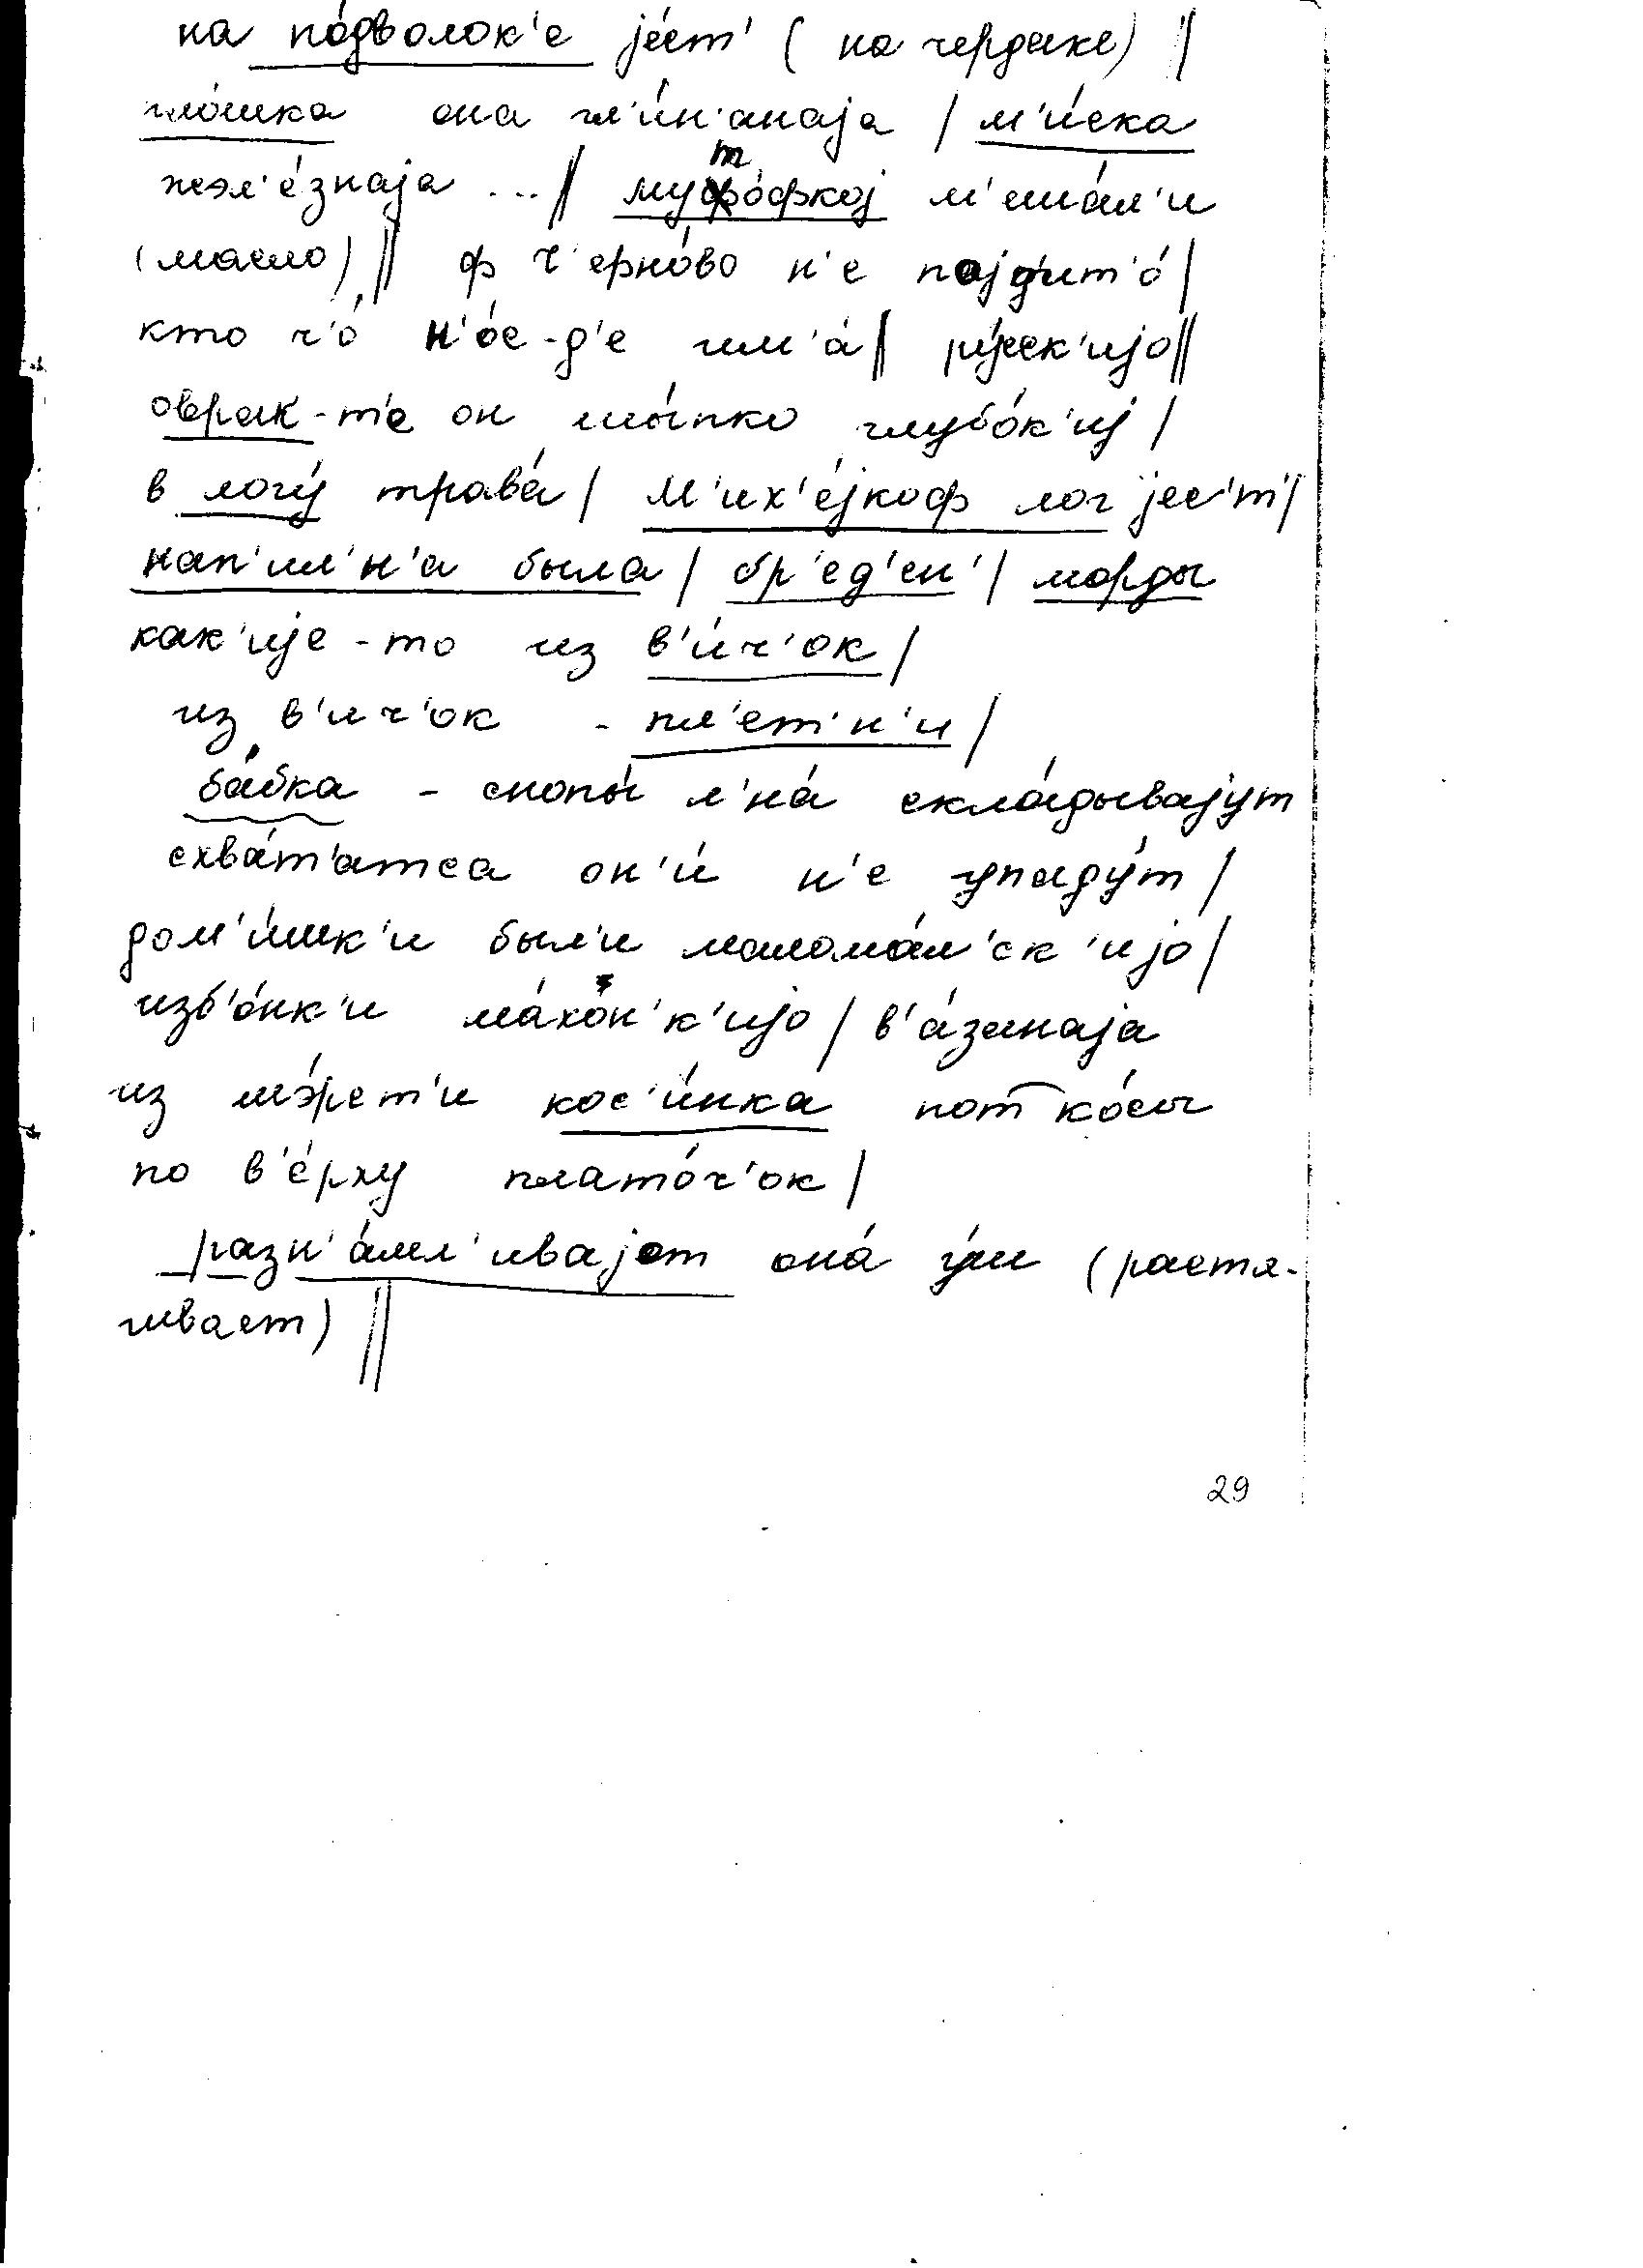 на по́дволок'е је́ст' ( на чердаке) ||
пло́шка она гл'и́н'анаја / м'и́ска
жэл'е́знаја ... || муто́фкој м'еша́л'и
(масло) || ф ч'ерно́во н'е појд'ит'о́ /
кто ч'о́ н'о́с-д'е им'а́ || ру́сск'ијо ||
оврак-т'е он шы́пко глубо́к'иј /
в логу́ трава́ / М'их'е́јкоф лог јес'т' /
была / бр'ед'ен' / морды
как'ије-то из в'и́ч'ок /
из в'ич'ок - пл'ет'н'и /
ба́бка - снопы́ л'на́ скла́дывајут
схва́т'атса он'и́ н'е упаду́т /
дом'и́шк'и был'и малома́л'ск'ијо /
изб'о́нк'и ма́хон'к'ијо / в'а́занаја
из шэ́рст'и кос'и́нка пот ко́сы
по в'е́рху плато́ч'ок /
она́ (растя-
гивает) ||
29